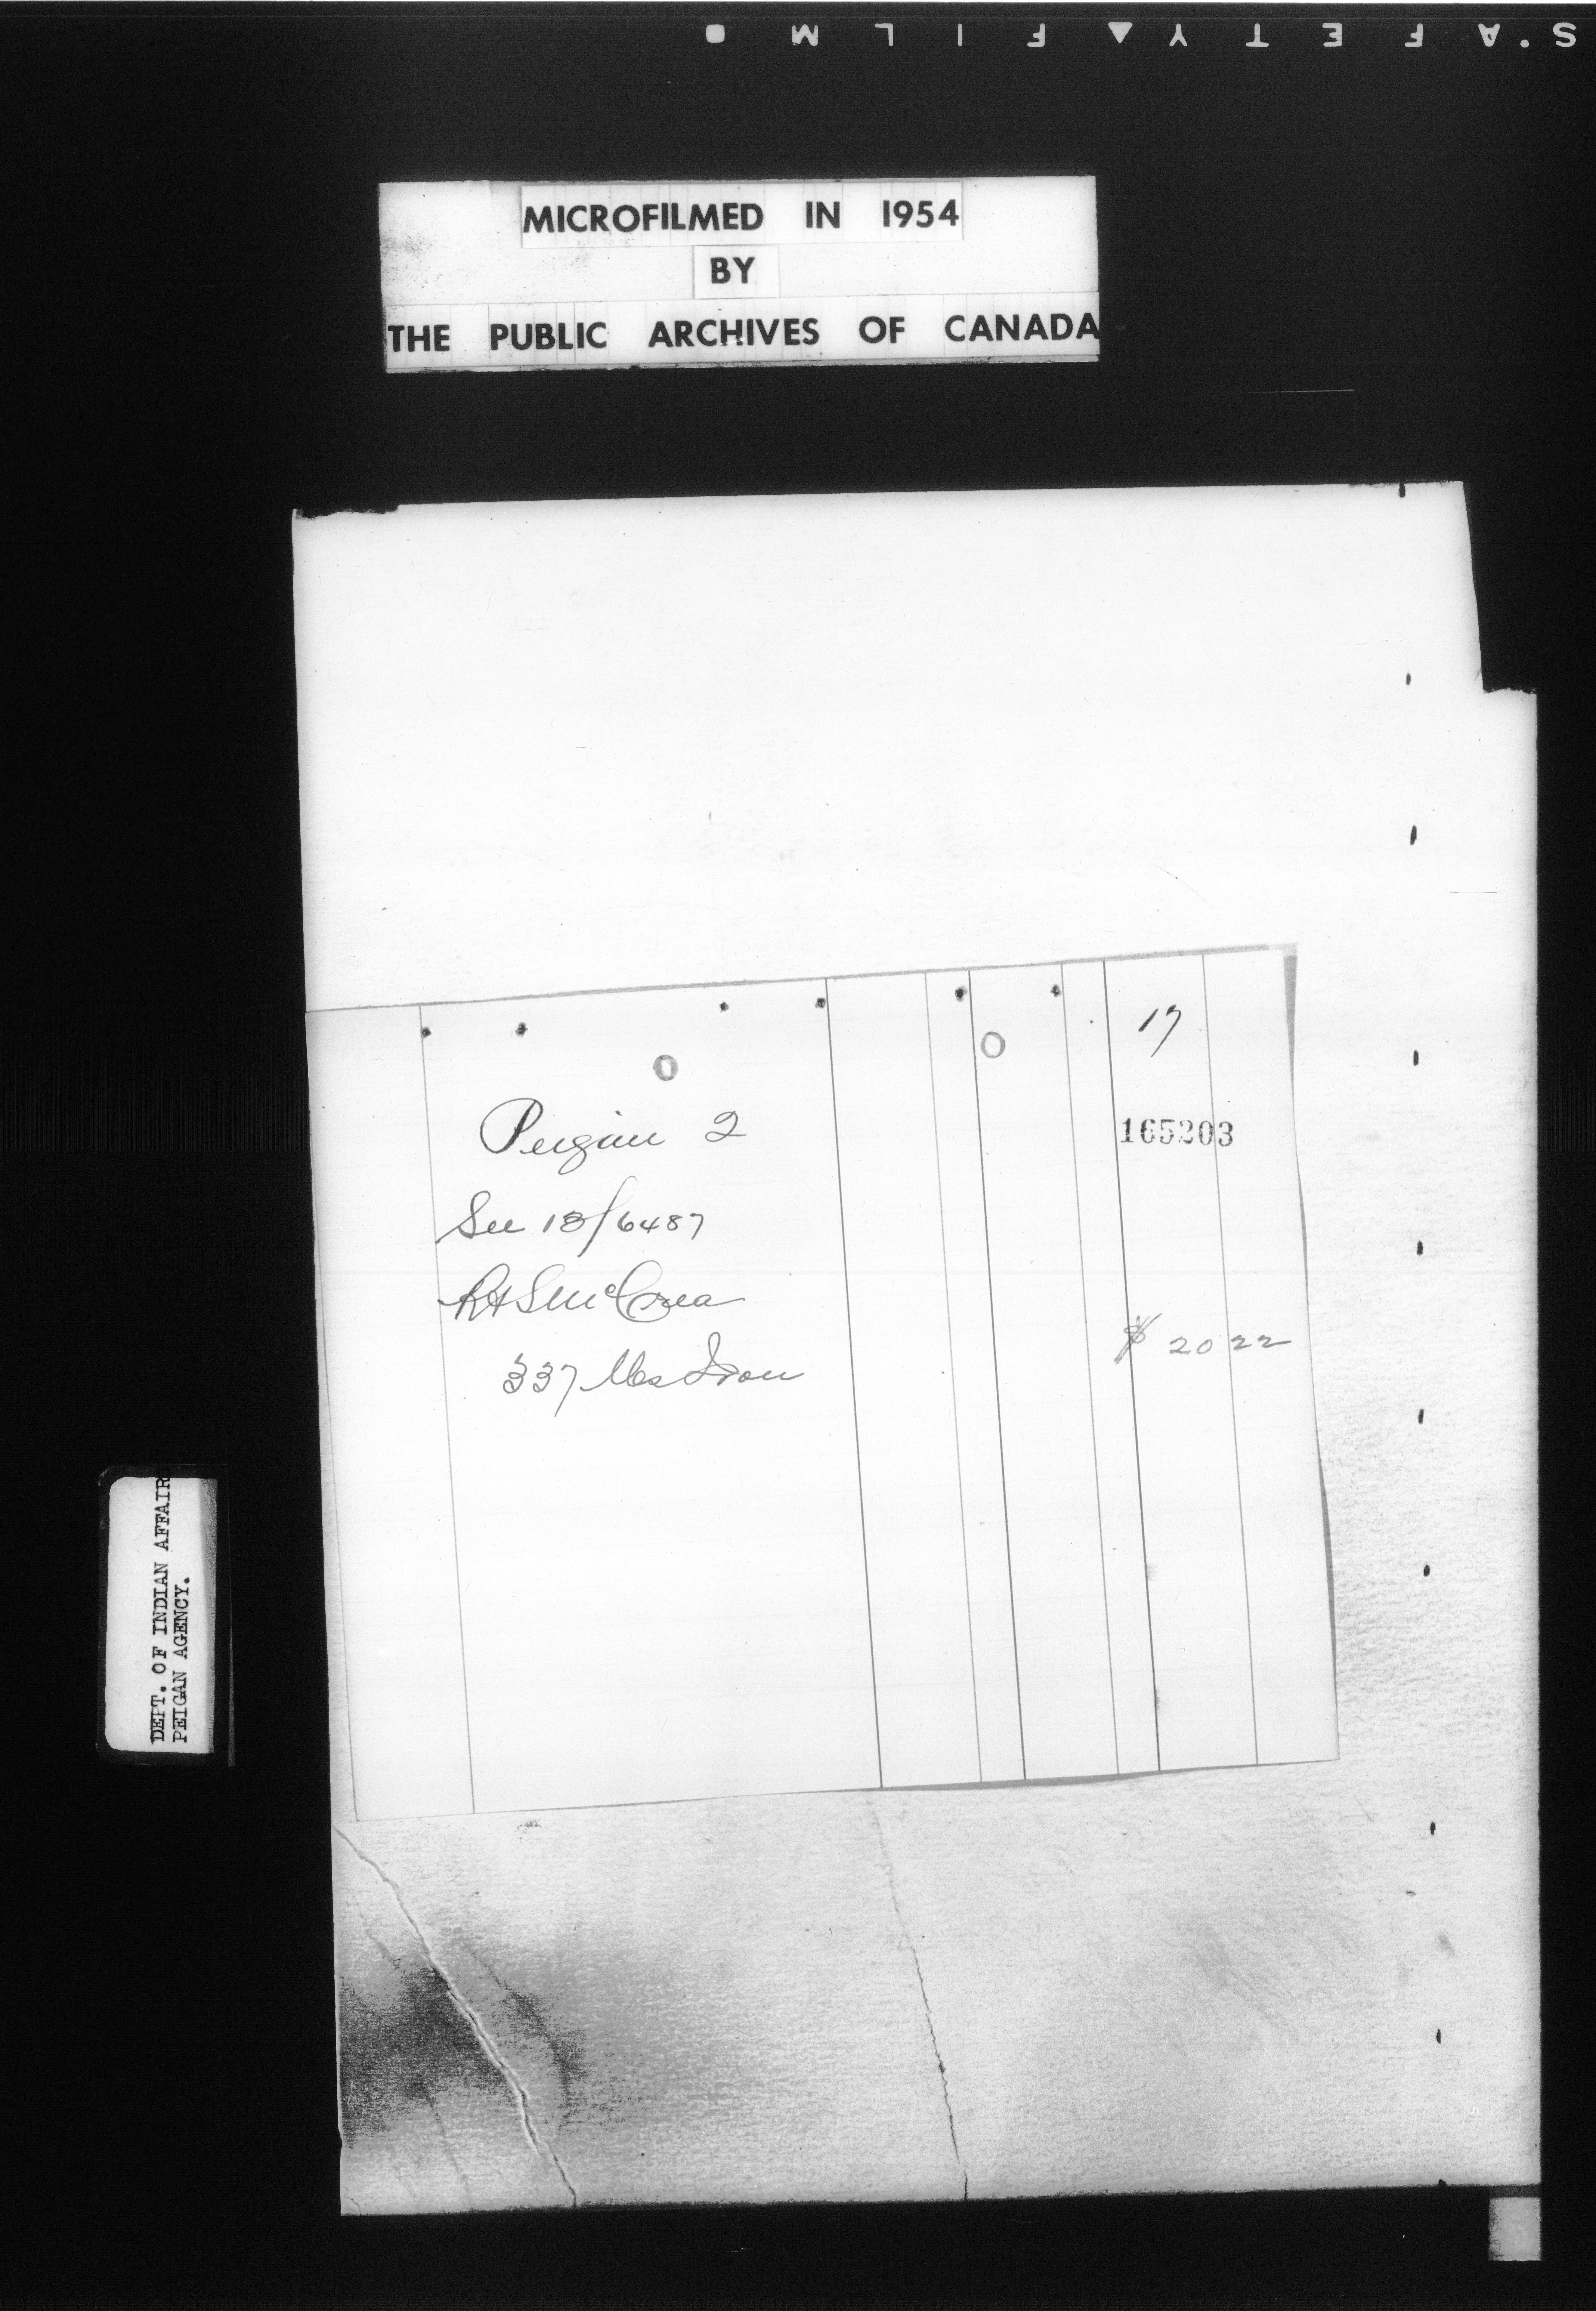 S.AFETY▲FILM
MICROFILMED IN 1954
BY
THE PUBLIC ARCHIVES OF CANADA
17
Peigan 2
165203
See 18/6487
McCrea
$ 20 22
337 lbs Iron
DEPT. OF INDIAN AFFAIRS
PEIGAN AGENCY.